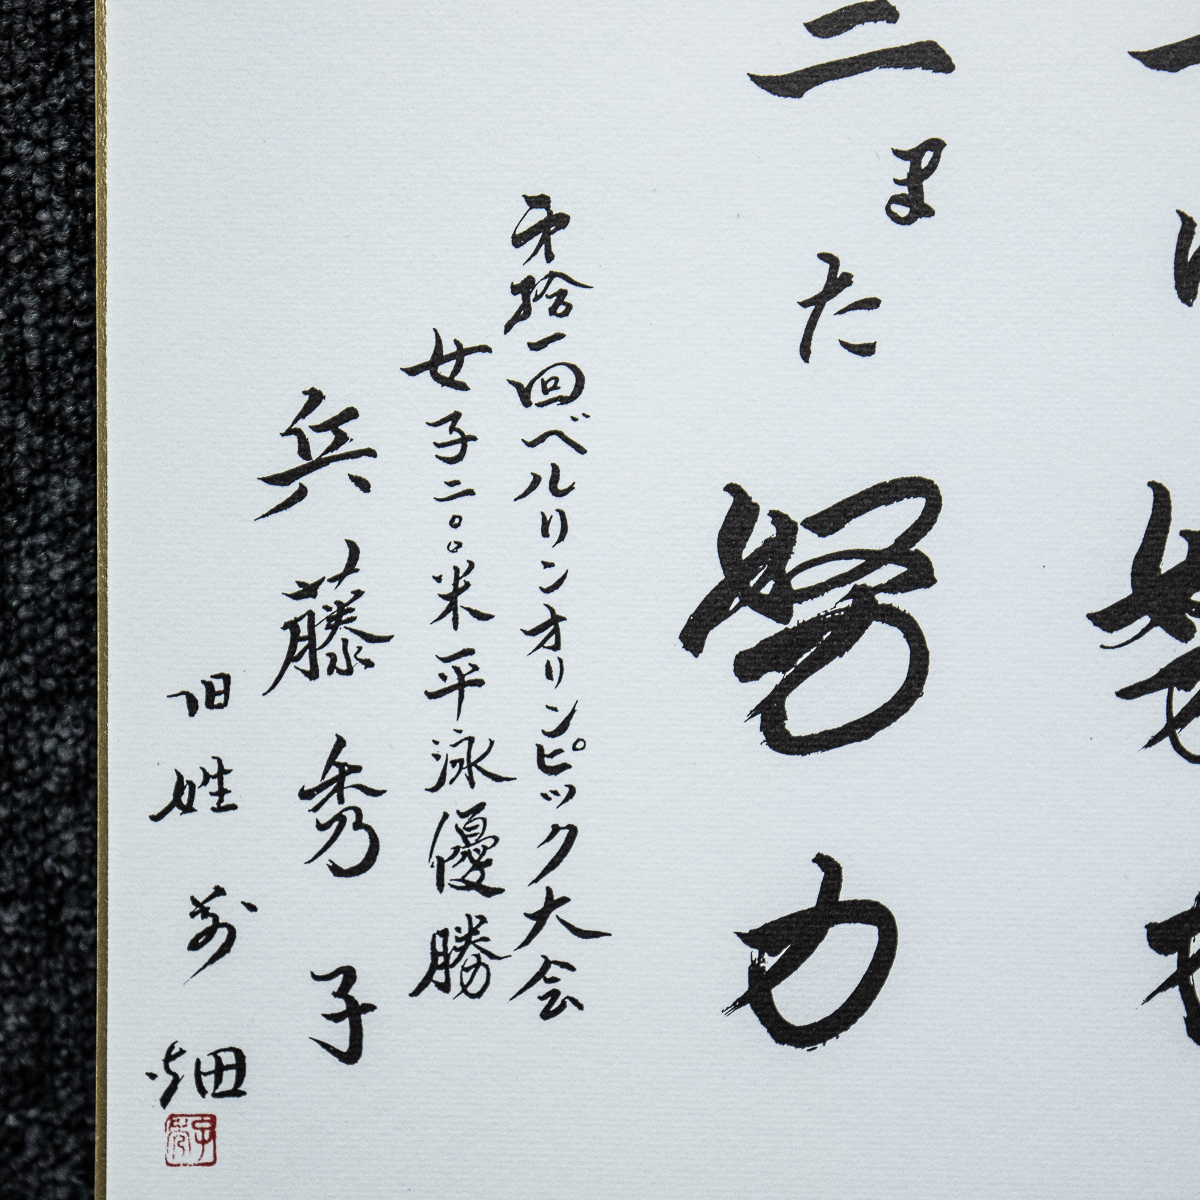 二
また
努力
才拾一回ベルリンオリンピック大会
女子二〇〇米平泳優勝
兵藤秀子
旧姓前畑
秀子